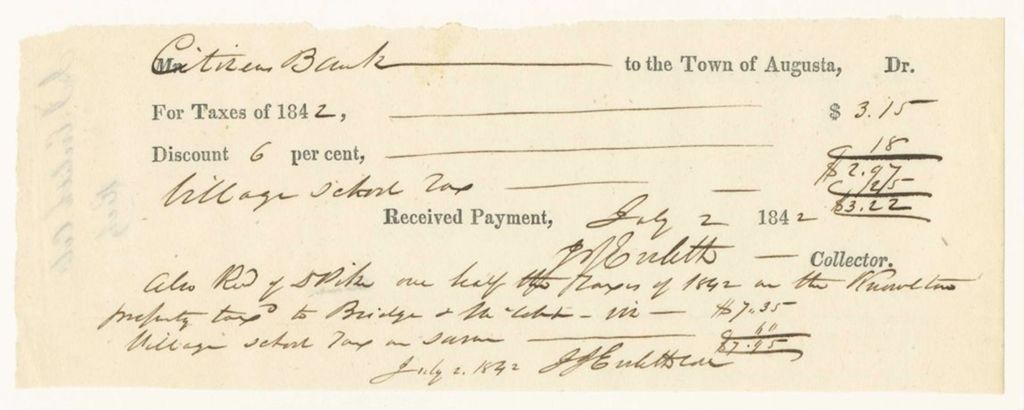 Mr Citizens Bank to the Town of Augusta, Dr.
For Taxes of 1842, $ 3.15
Discount 6 per cent, 18
$2.97
Village School Tax 25
$3.22
Received Payment, July 2 1842
Collector.
Also Recd of D Pike one half the Taxes of 1842 on the Knowlton
property taxd to Bridge & - viz - $7.35
Village school Tax on same 60
$7.95
July 2. 1842